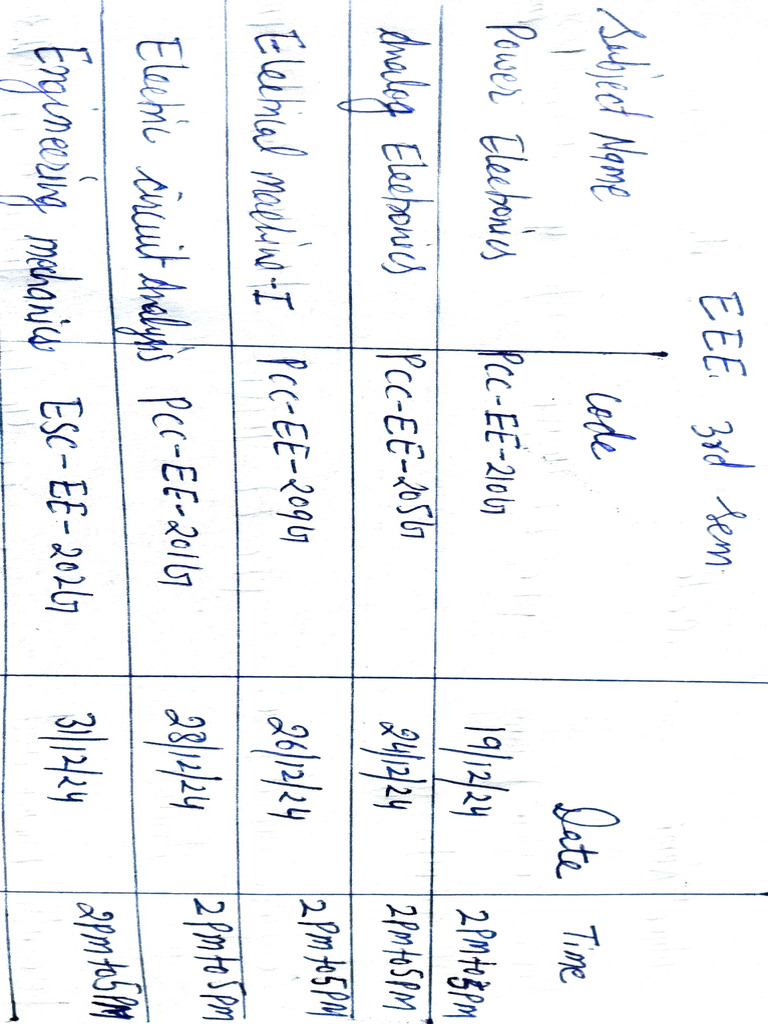 EEE. 3rd Sem.
Subject Name Code Date Time
Power Electronics PCC-EE-210G 19/12/24 2PM to 5PM
Analog Electronics PCC-EE-205G 24/12/24 2PM to 5PM
Electrical machine-I PCC-EE-209G 26/12/24 2PM to 5PM
Electric circuit Analysis PCC-EE-201G 28/12/24 2PM to 5PM
Engineering mechanics ESC-EE-202G 31/12/24 2PM to 5PM